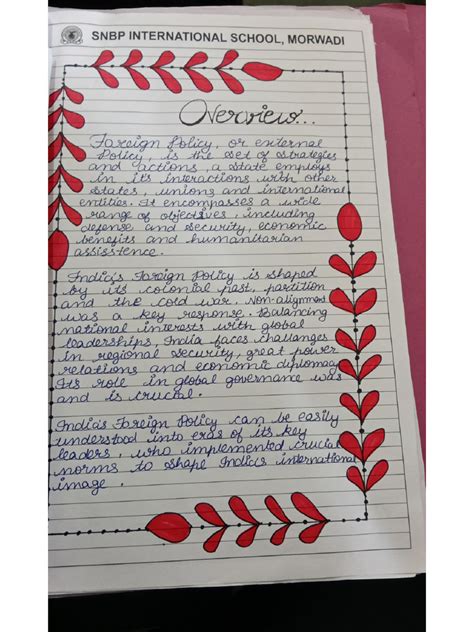 SNBP INTERNATIONAL SCHOOL, MORWADI
Overview...
Foreign Policy, or external
Policy, is the set of strategies
and actions, a state employs
in its interactions with other
states, unions and international
entities. It encompasses a wide
range of objectives, including
defense and security, economic
benefits and humanitarian
assistence.
India's Foreign Policy is shaped
by its colonial past, partition
and the cold war. Non-alignment
was a key response. Balancing
national interests with global
leaderships, India faces challanges
in regional security, great power
relations and economic diplomacy.
Its role in global governance was
and is crucial.
India's Foreign Policy can be easily
understood into eras of its key
leaders, who implemented crucial
norms to shape India's international
image.